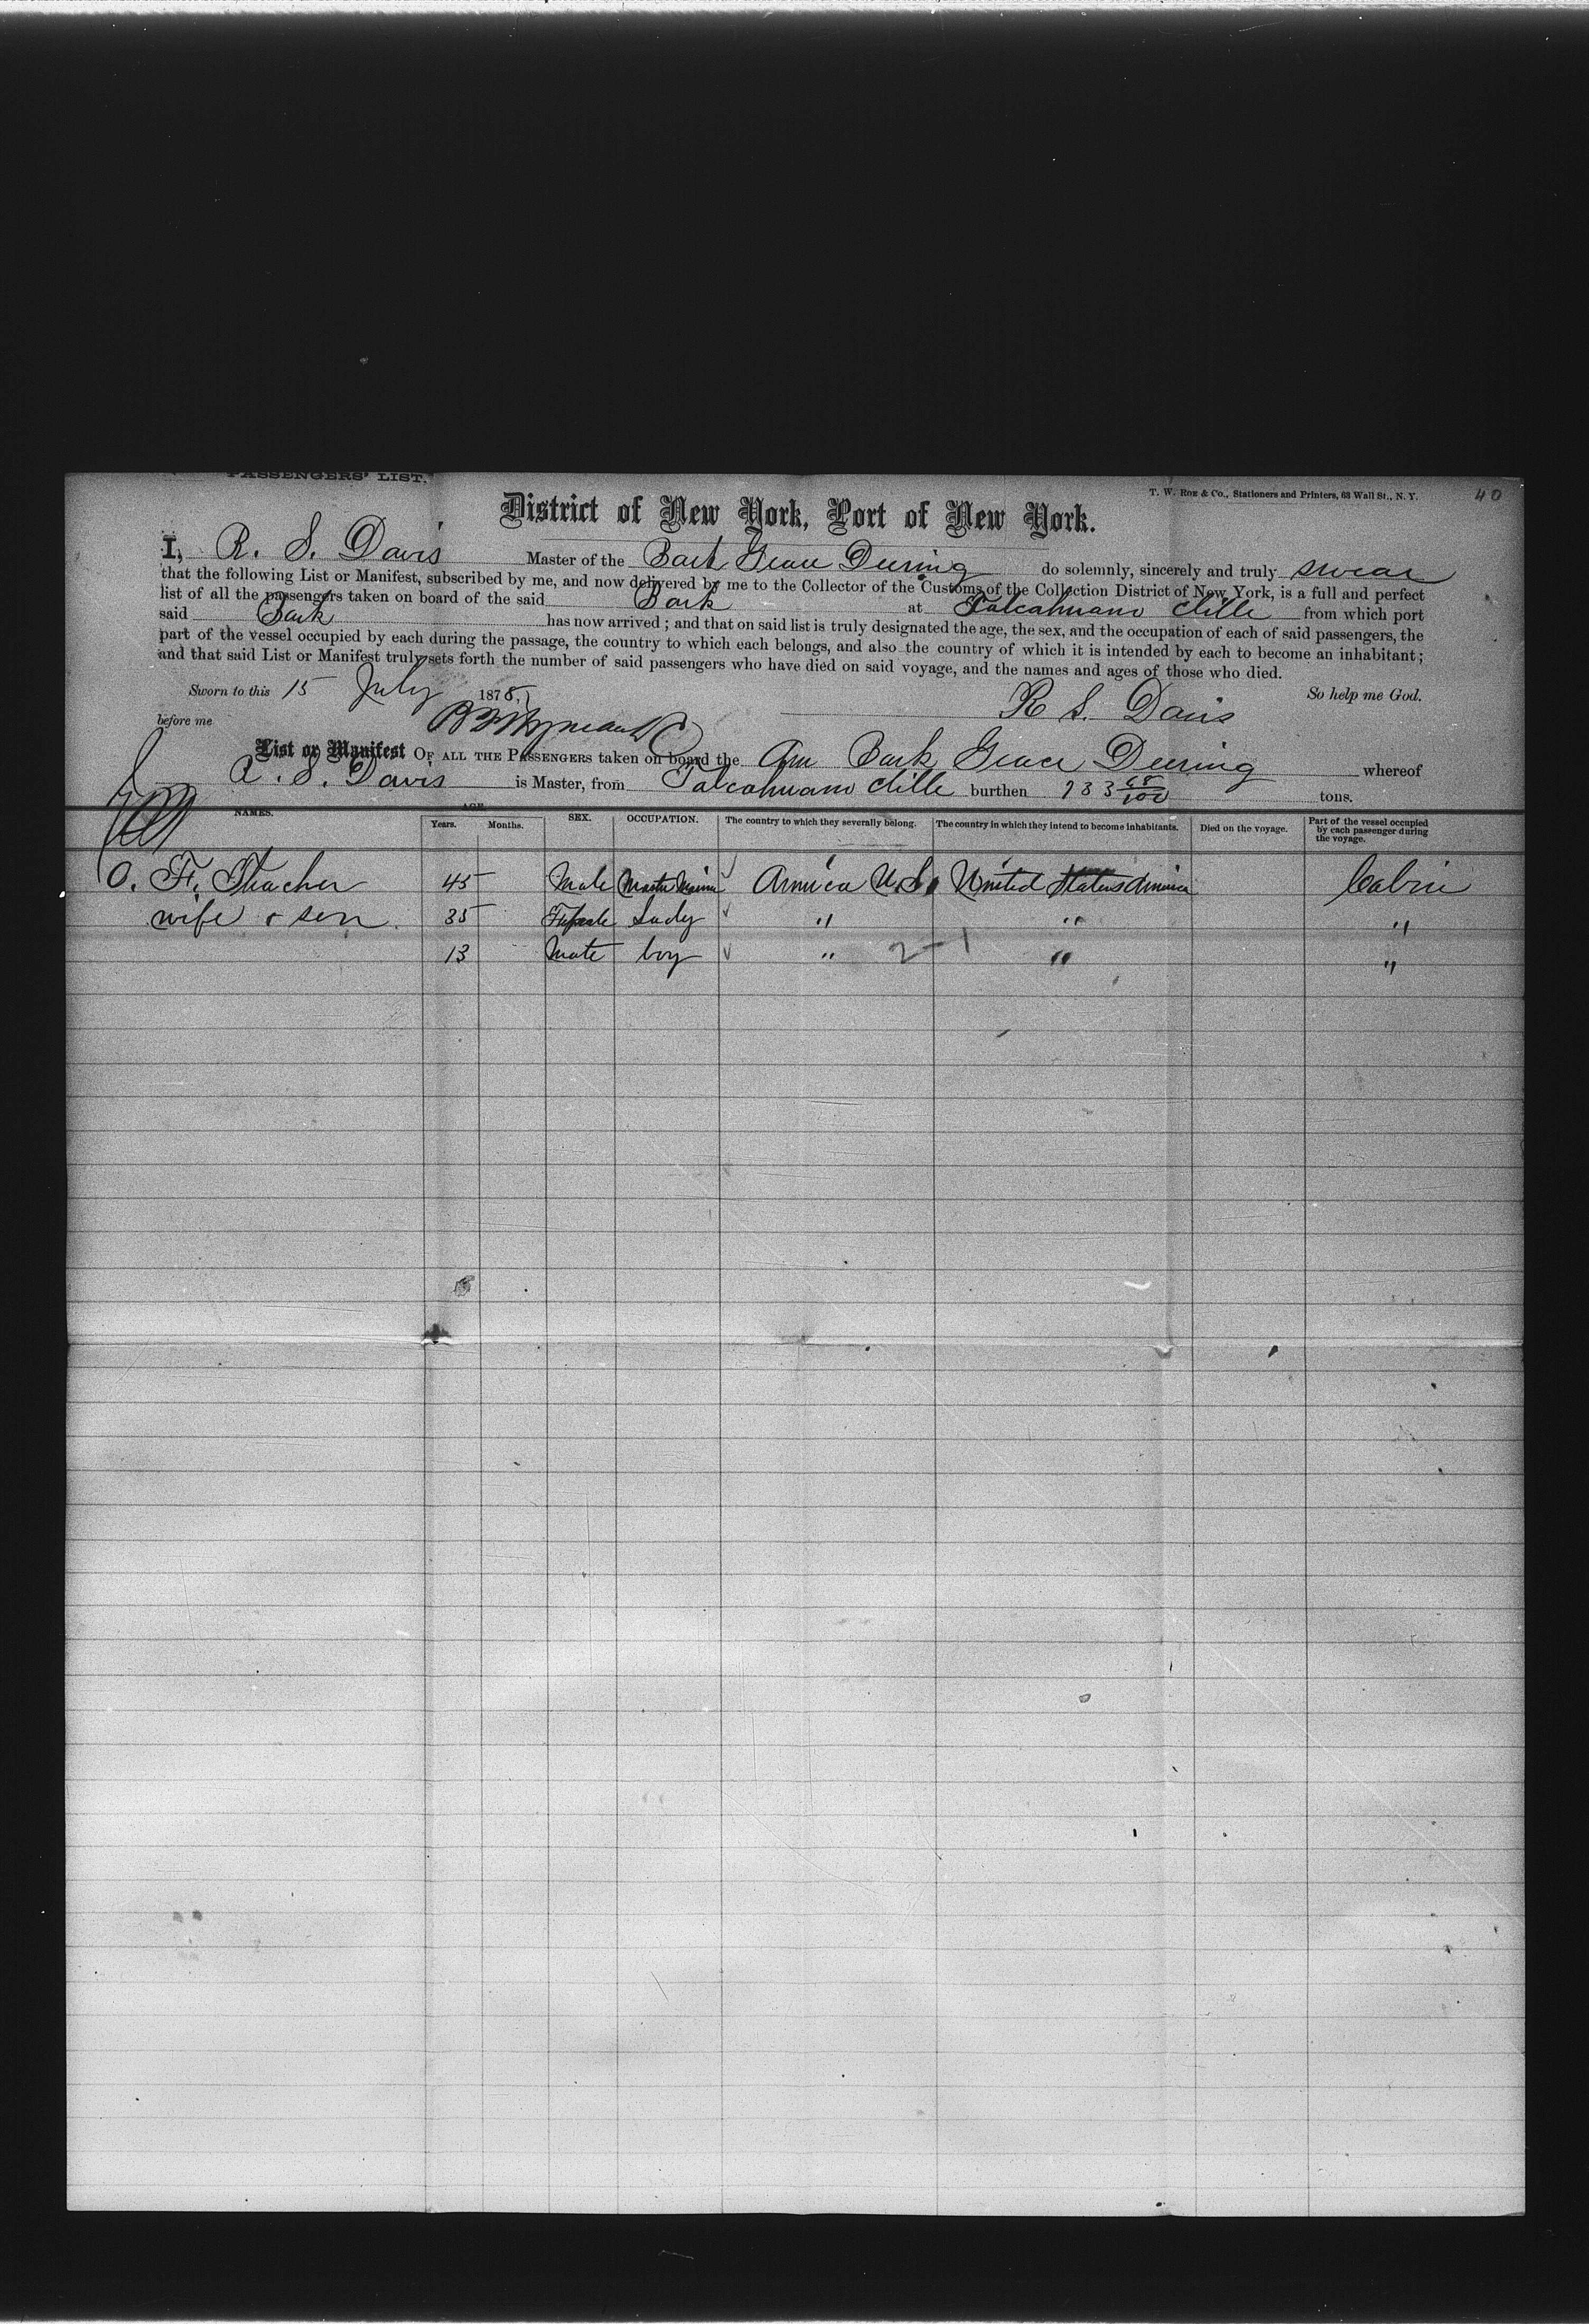 PASSENGERS' LIST.
T. W. Roe & Co., Stationers and Printers, 63 Wall St., N. Y.
40
District of New York, Port of New York.
I, R. S. Davis Master of the Bark Grace Deering do solemnly, sincerely and truly swear
that the following List or Manifest, subscribed by me, and now delivered by me to the Collector of the Customs of the Collection District of New York, is a full and perfect
list of all the passengers taken on board of the said Bark at Talcahuano Chille from which port
said Bark has now arrived; and that on said list is truly designated the age, the sex, and the occupation of each of said passengers, the
part of the vessel occupied by each during the passage, the country to which each belongs, and also the country of which it is intended by each to become an inhabitant;
and that said List or Manifest truly sets forth the number of said passengers who have died on said voyage, and the names and ages of those who died.
Sworn to this 15 July 1878, So help me God.
R S. Davis
before me
List or Manifest OF ALL THE PASSENGERS taken on board the Am Bark Grace Deering whereof
R. S. Davis is Master, from Talcahuano Chille burthen 733 68/100 tons.
NAMES. AGE. Years. Months. SEX. OCCUPATION. The country to which they severally belong. The country in which they intend to become inhabitants. Died on the voyage. Part of the vessel occupied by each passenger during the voyage.
O. F. Thacher 45 Male Master America U.S. United States America Cabin
wife & son 35 Female Lady " " "
13 Male boy " 2-1 " "